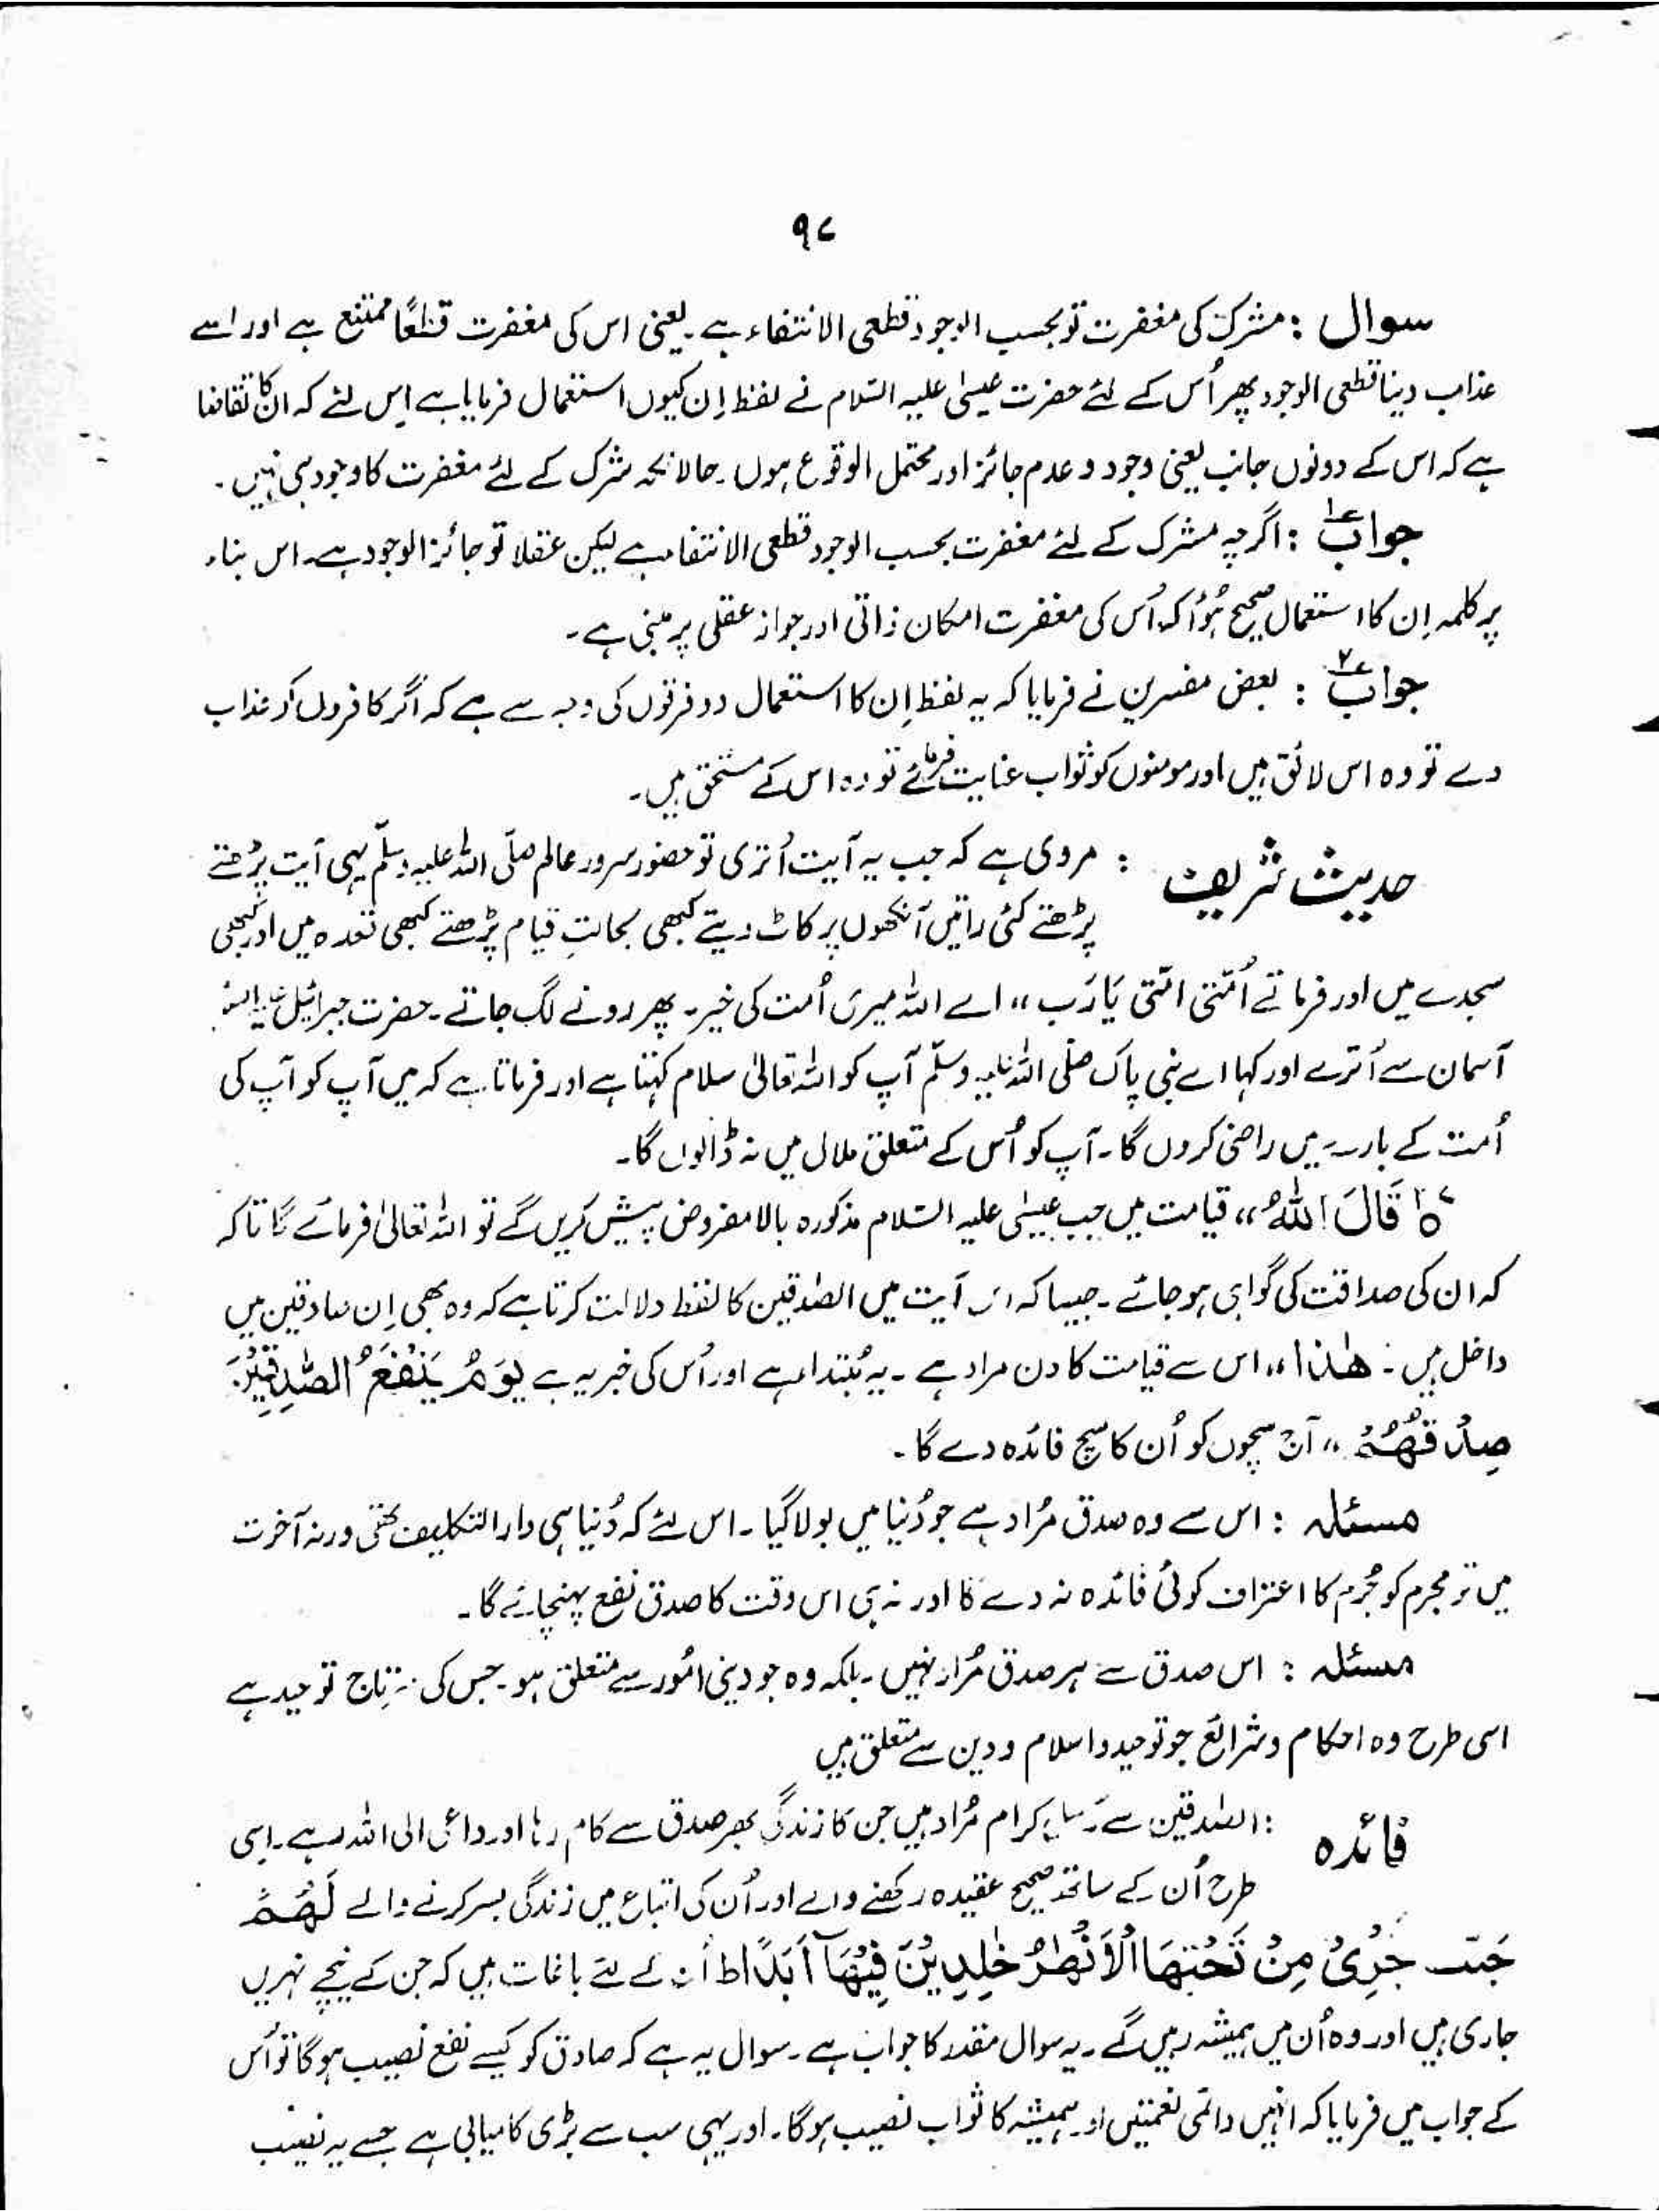 ۹۷
سوال : مشرک کی مغفرت تو بحسب الوجود قطعی الانتفاء ہے ۔ یعنی اس کی مغفرت قطعًا ممتنع ہے اور اسے
عذاب دینا قطعی الوجود پھر اُس کے لئے حضرت عیسیٰ علیہ السّلام نے لفظ اِن کیوں استعمال فرمایا ہے اِس لئے کہ ان کا تقاضا
ہے کہ اس کے دونوں جانب یعنی وجود و عدم جائز اور محتمل الوقوع ہوں ۔ حالانکہ مشرک کے لئے مغفرت کا وجود ہی نہیں ۔
جواب ۱ : اگرچہ مشرک کے لئے مغفرت بحسب الوجود قطعی الانتفاء ہے لیکن عقلا تو جائز الوجود ہے ۔ اس بناء
پر کلمہ اِن کا استعمال صحیح ہُوا کہ اُس کی مغفرت امکان ذاتی اور جواز عقلی پر مبنی ہے ۔
جواب ۲ : بعض مفسرین نے فرمایا کہ یہ لفظ اِن کا استعمال دو فرقوں کی وجہ سے ہے کہ اگر کافروں کو عذاب
دے تو وہ اس لائق ہیں اور مومنوں کو ثواب عنایت فرمائے تو وہ اس کے مستحق ہیں ۔
حدیث شریف : مروی ہے کہ جب یہ آیت اُتری تو حضور سرور عالم صلّی اللہ علیہ وسلّم یہی آیت پڑھتے
پڑھتے کئی راتیں آنکھوں پر کاٹ دیتے کبھی بحالتِ قیام پڑھتے کبھی قعدہ میں اور کبھی
سجدے میں اور فرماتے اُمّتی امّتی یَا رَب ،، اے اللہ میری اُمت کی خیر ۔ پھر رونے لگ جاتے ۔ حضرت جبرائیل علیہ السلام
آسمان سے اُترے اور کہا اے نبی پاک صلّی اللہ علیہ وسلّم آپ کو اللہ تعالیٰ سلام کہتا ہے اور فرماتا ہے کہ میں آپ کو آپ کی
اُمت کے بارے میں راضی کروں گا ۔ آپ کو اُس کے متعلق ملال میں نہ ڈالوں گا ۔
قَالَ اللّٰہُ ،، قیامت میں جب عیسیٰ علیہ السّلام مذکورہ بالا معروض پیش کریں گے تو اللہ تعالیٰ فرمائے گا تا کہ
کہ ان کی صداقت کی گواہی ہو جائے ۔ جیسا کہ اس آیت میں الصّٰدقین کا لفظ دلالت کرتا ہے کہ وہ بھی اِن صادقین میں
داخل ہیں : ھٰذا ،، اس سے قیامت کا دن مراد ہے ۔ یہ مُبتداء ہے اور اُس کی خبر یہ ہے یَوْمُ یَنْفَعُ الصّٰدِقِیْنَ
صِدْقُھُمْ ،، آج سچوں کو اُن کا سچ فائدہ دے گا ۔
مسئلہ : اس سے وہ صدق مُراد ہے جو دُنیا میں بولا گیا ۔ اس لئے کہ دُنیا ہی دار التکلیف تھی ورنہ آخرت
میں تو مجرم کو جُرم کا اعتراف کوئی فائدہ نہ دے گا اور نہ ہی اس وقت کا صدق نفع پہنچائے گا ۔
مسئلہ : اس صدق سے ہر صدق مُراد نہیں ۔ بلکہ وہ جو دینی امُور سے متعلق ہو ۔ جس کی تاج توحید ہے
اسی طرح وہ احکام و شرائع جو توحید و اسلام و دین سے متعلق ہیں
فائدہ : الصّٰدقین سے رُسل کرام مُراد ہیں جن کا زندگی بھر صدق سے کام رہا اور داعی الی اللہ رہے ۔ اسی
طرح اُن کے ساتھ صحیح عقیدہ رکھنے والے اور اُن کی اتباع میں زندگی بسر کرنے والے لَھُمْ
جَنّٰت تَجْرِیْ مِنْ تَحْتِھَا الْاَنْھٰرُ خٰلِدِیْنَ فِیْھَآ اَبَدًا ط اُن کے لئے باغات ہیں کہ جن کے نیچے نہریں
جاری ہیں اور وہ اُن میں ہمیشہ رہیں گے ۔ یہ سوال مقدر کا جواب ہے ۔ سوال یہ ہے کہ صادق کو کیسے نفع نصیب ہو گا تو اُس
کے جواب میں فرمایا کہ انہیں دائمی نعمتیں اور ہمیشہ کا ثواب نصیب ہو گا ۔ اور یہی سب سے بڑی کامیابی ہے جسے یہ نصیب